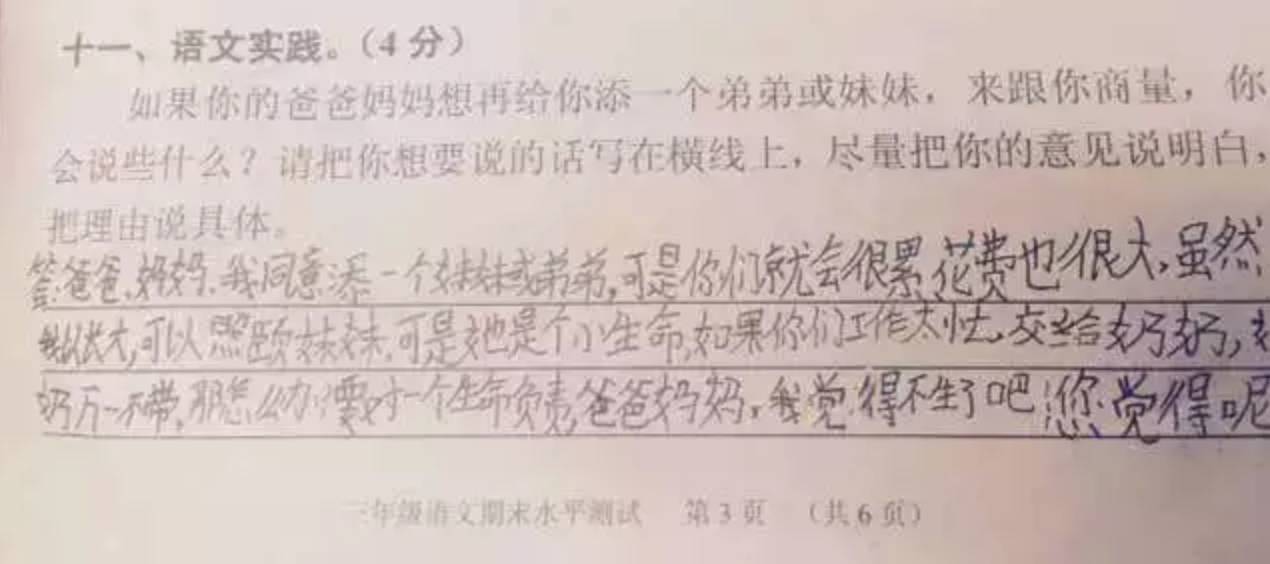 十一、语文实践。（4分）
如果你的爸爸妈妈想再给你添一个弟弟或妹妹，来跟你商量，你
会说些什么？请把你想要说的话写在横线上，尽量把你的意见说明白，
把理由说具体。
答:爸爸、妈妈、我同意添一个妹妹或弟弟,可是你们就会很累,花费也很大,虽然
长大,可以照顾妹妹,可是她是个小生命,如果你们工作太忙,交给奶奶,
奶万一不带,那怎么办?要对一个生命负责,爸爸妈妈,我觉得不生了吧!您觉得呢
三年级语文期末水平测试 第3页 （共6页）